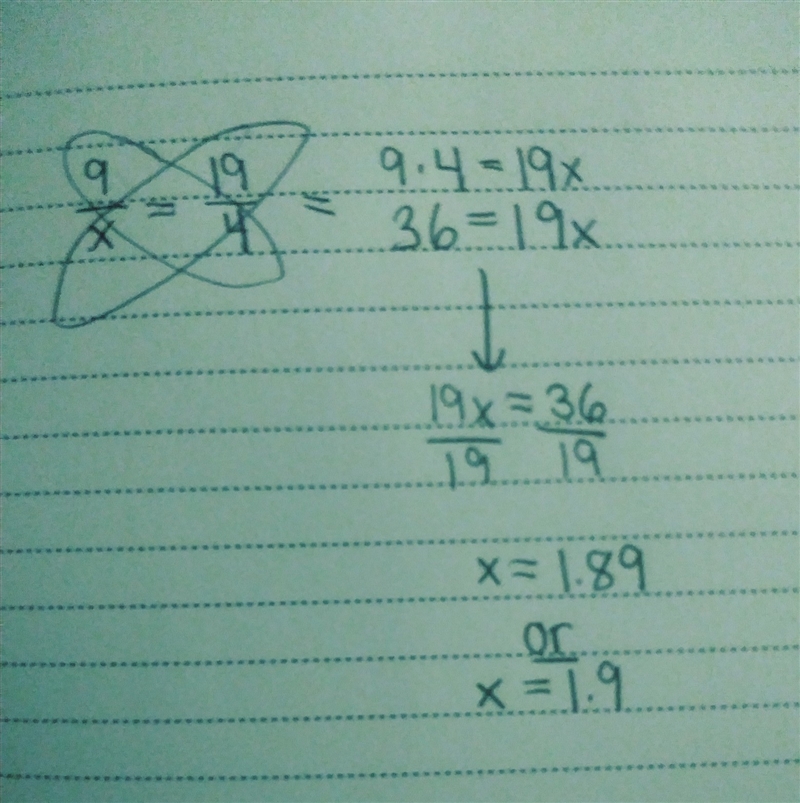 9/x = 19/4 = 9·4 = 19x
36 = 19x
19x/19 = 36/19
x = 1.89
or
x = 1.9